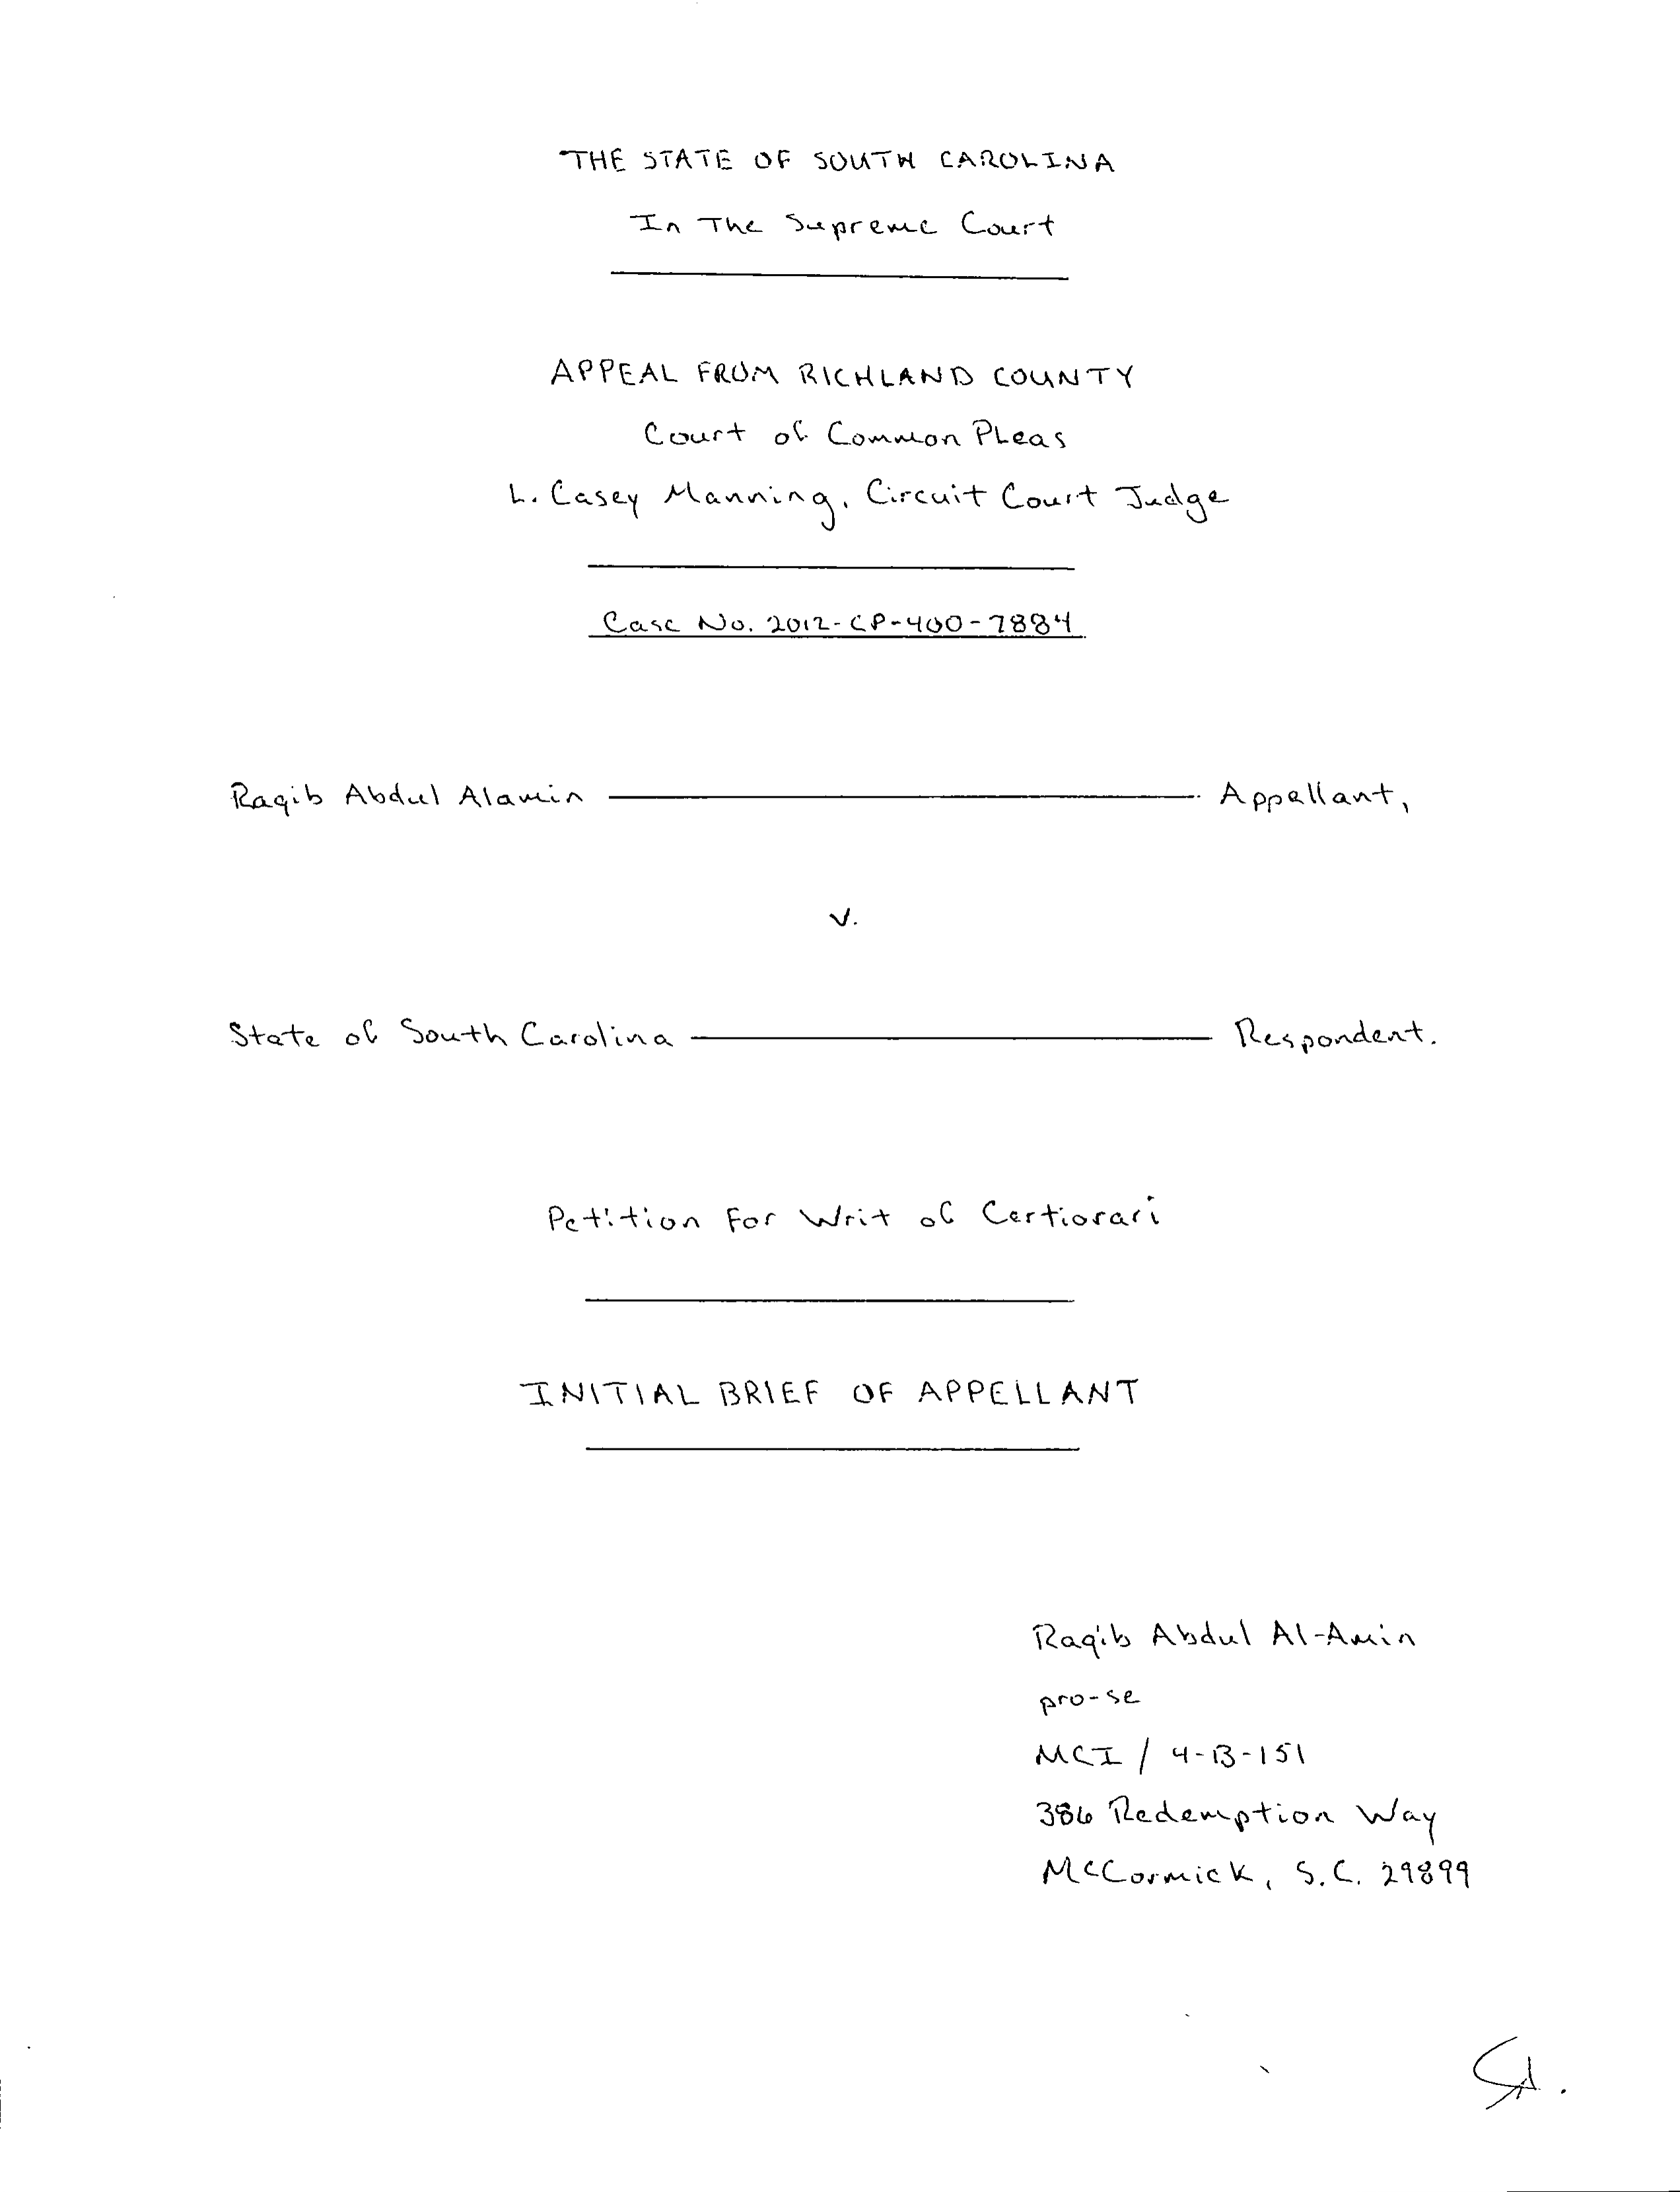 THE STATE OF SOUTH CAROLINA
In The Supreme Court
APPEAL FROM RICHLAND COUNTY
Court of Common PLeas
L. Casey Manning, Circuit Court Judge
Case No. 2012-CP-400-7884
Raqib Abdul Alamin Appellant,
v.
State of South Carolina Respondent.
Petition For Writ of Certiorari
INITIAL BRIEF OF APPELLANT
Raqib Abdul Al-Amin
pro-se
MCI / 4-B-151
386 Redemption Way
McCormick, S.C. 29899